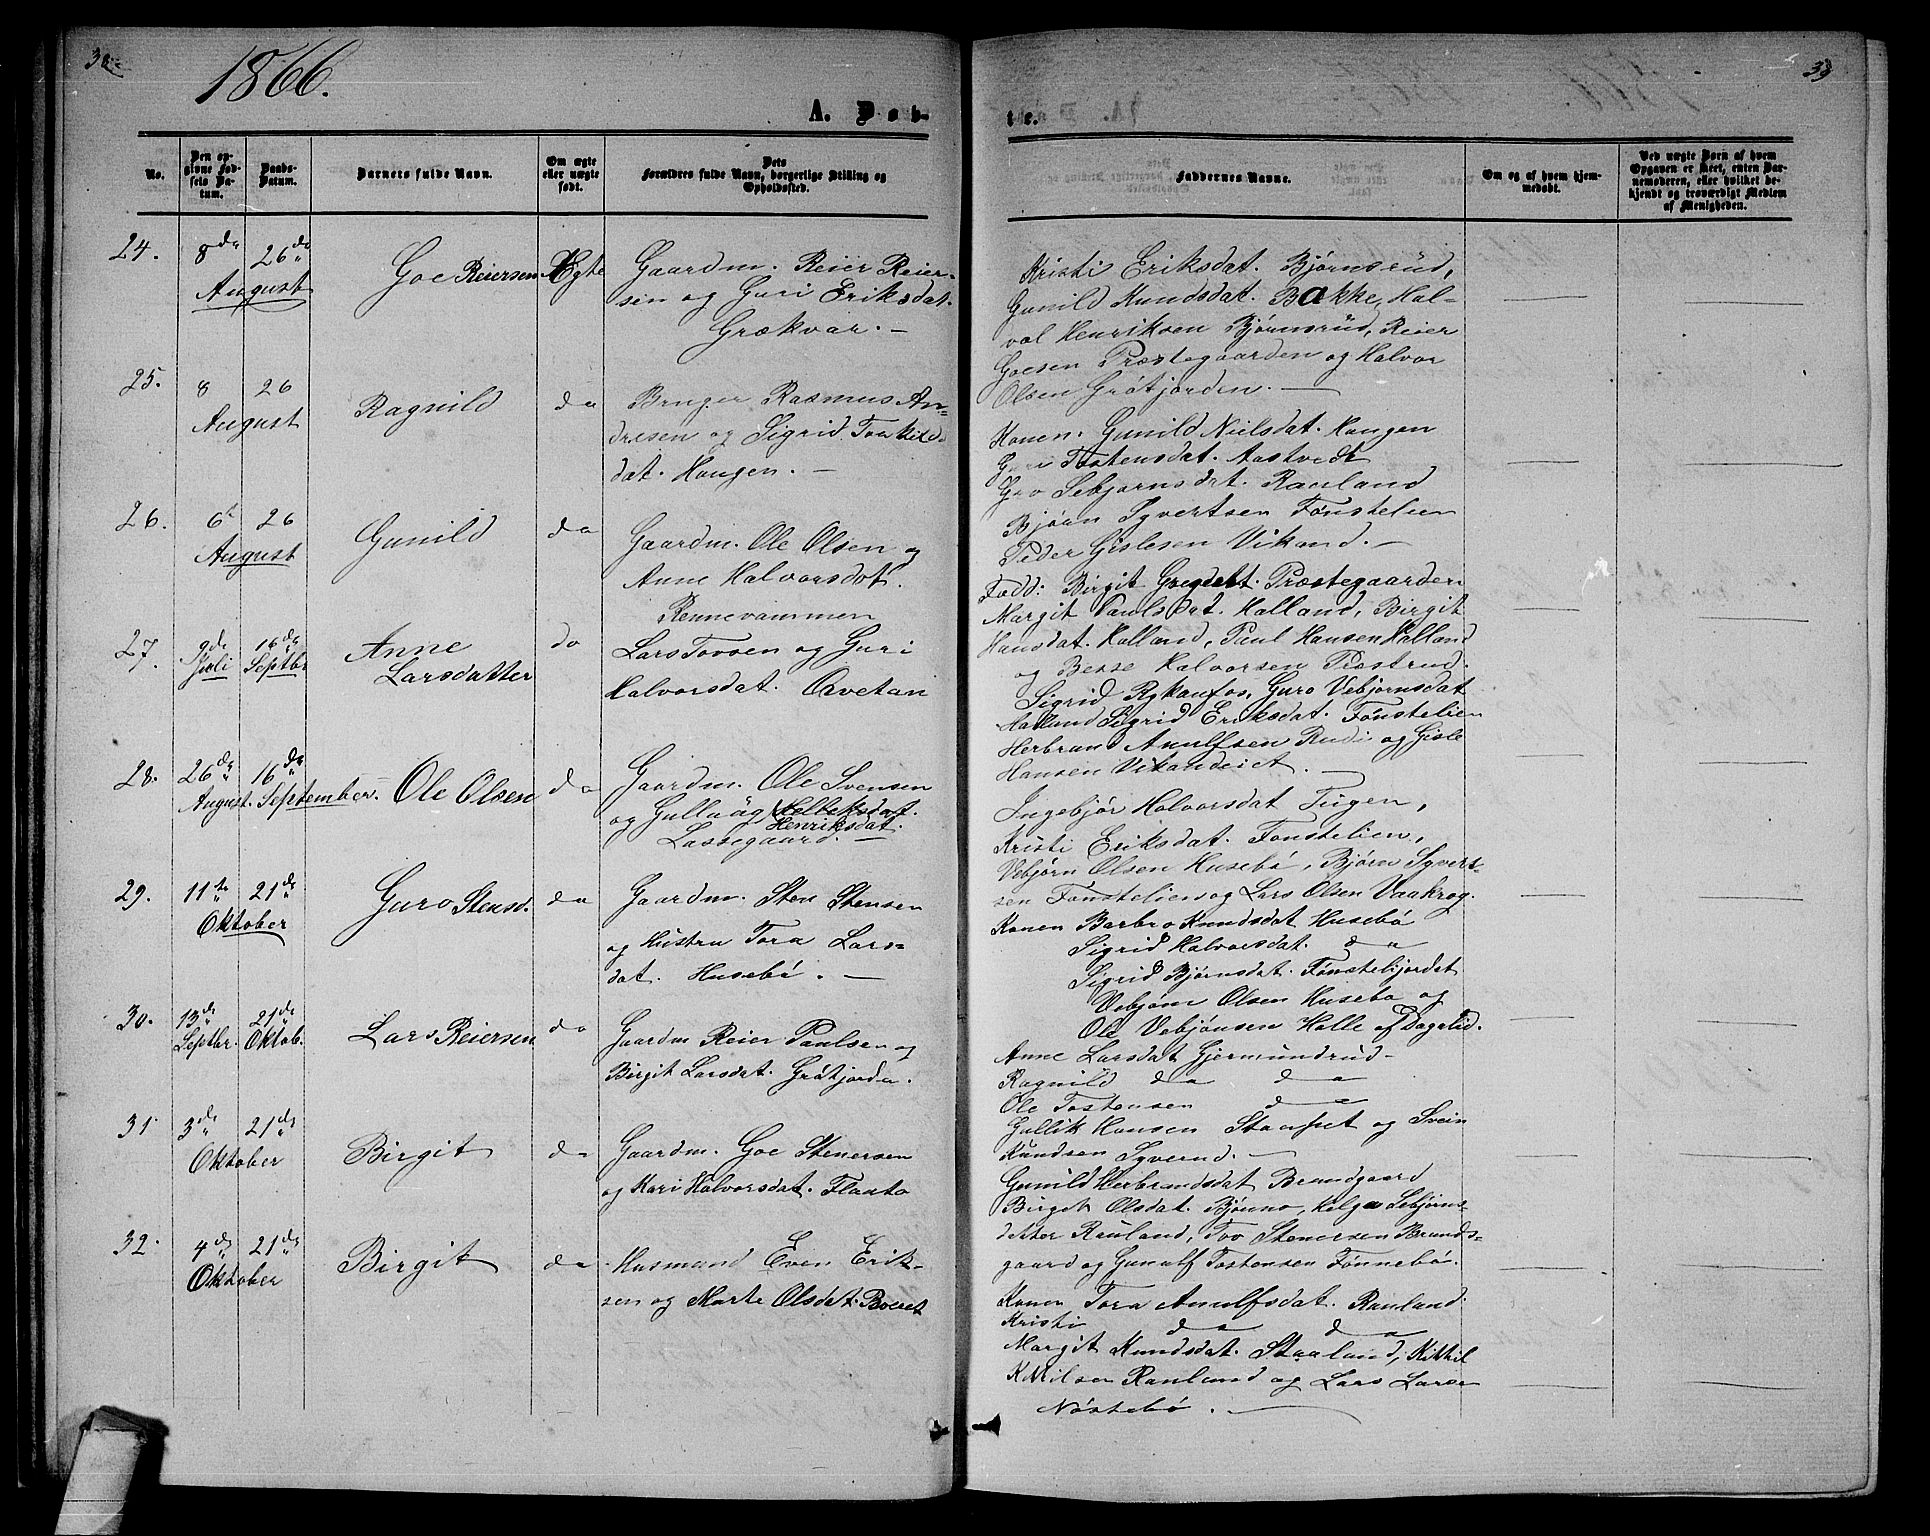 38
1866.
A. Døb-
No.
Den op-
givne Fød-
sels Da-
tum.
Daabs-
Datum.
Barnets fulde Navn.
Om ægte
eller uægte
født.
Dets
Forældres fulde Navn, borgerlige Stilling og
Opholdssted.
24.
8de
26de
August
Goe Reiersen
Ægte
Gaardm. Reier Reier-
sen og Guri Eriksdat.
Grækvar. —
25.
8
26
August
Ragnild
do
Bruger Rasmus An-
dresen og Sigrid
dat. Haugen. —
26.
6t
26
August
Gunild
do
Gaardm. Ole Olsen og
Anne Halvorsdat.
Rennevammen
27.
9de
Juli
16de
Septbr
Anne
Larsdatter
do
Lars Tovsen og Guri
Halvorsdat.
28.
26de
August.
16de
September.
Ole Olsen
do
Gaardm. Ole Svensen
og Gulloug
Henriksdat.
Lassegaard. —
29.
11te
21de
Oktober
Guro Stensd.
do
Gaardm. Sten Stensen
og Hustru Tora Lars-
dat. Husebö. —
30.
13de
Septbr.
21de
Oktob.
Lars Reiersen
do
Gaardm Reier Paulsen og
Birgit Larsdat. Gråtjorden.
31.
3de
21de
Oktober
Birgit
do
Gaardm. Goe Stenersen
og Kari Halvorsdat. Flaata
32.
4de
21de
Oktober
Birgit
do
Husmand Even Erik-
sen og Marte Olsdat.
39
te.
Faddernes Navne.
Om og af hvem hjem-
medøbt.
Ved uægte Børn af hvem
Opgaven er skeet, enten Bar-
nemoderen, eller hvilket be-
kjendt og troværdigt Medlem
af Menigheden.
Kristi Eriksdat. Bjørnsrud,
Gunild Knudsdat. Bakke, Hal-
vol Henriksen Bjørnsrud, Reier
Goesen Præstegaarden og Halvor
Olsen Gråtjorden. —
Konen. Gunild Nielsdat. Haugen
Guri Tostensdat. Aastvedt
Gro Sebjørnsdat. Rauland
Bjørn Syvertsen Fønstelien
Peder Gislesen Vikand. —
Fadd: Birgit Goesdatt. Præstegaarden
Margit Paulsdat. Halland, Birgit
Hansdat. Halland, Paul Hansen Halland
og Besse Halvorsen Præstrud.
Sigrid Rykanfos, Guro Vebjørnsdat
Halland Sigrid Eriksdat. Fønstelien
Herbran Anulfsen Rudi og Gisle
Hansen Vikandeiet. —
Ingebjør Halvorsdat Tugen,
Kristi Eriksdat. Fønstelien,
Vebjørn Olsen Husebö, Bjørn Syvert-
sen Fønstelien og Lars Olsen Vaakrog.
Konen Barbro Knudsdat Husebö
Sigrid Halvorsdat. do
Sigrid Bjørnsdat. Fønsteljordet
Vebjørn Olsen Husebö og
Ole Vebjønsen Halle af Dagalid.
Anne Larsdat Gjermundrud-
Ragnild do do
Ole Tostensen do
Gullik Hansen og Svein
Knudsen Syverud. —
Gunild Herbrandsdat Brandsgaard
Birget Olsdat. Bjønno, Helga Sebjørns-
datter Rauland, Tov Stenersen Brands-
gaard og Gunulf Tostensen Fønnebö.
Konen Tora Anulfsdat. Rauland.
Kristi do do
Margit Knudsdat. Staaland, Kittil
Kittilsen Rauland og Lars Larsen
Nöstebö. —